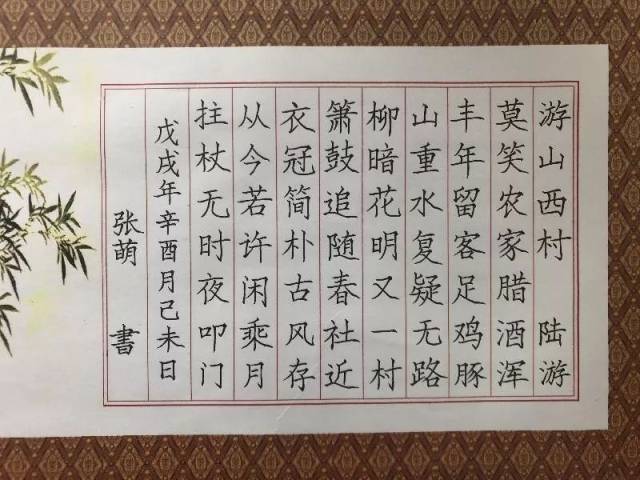 游山西村 陆游
莫笑农家腊酒浑
丰年留客足鸡豚
山重水复疑无路
柳暗花明又一村
箫鼓追随春社近
衣冠简朴古风存
从今若许闲乘月
拄杖无时夜叩门
戊戌年辛酉月己未日
张萌 書